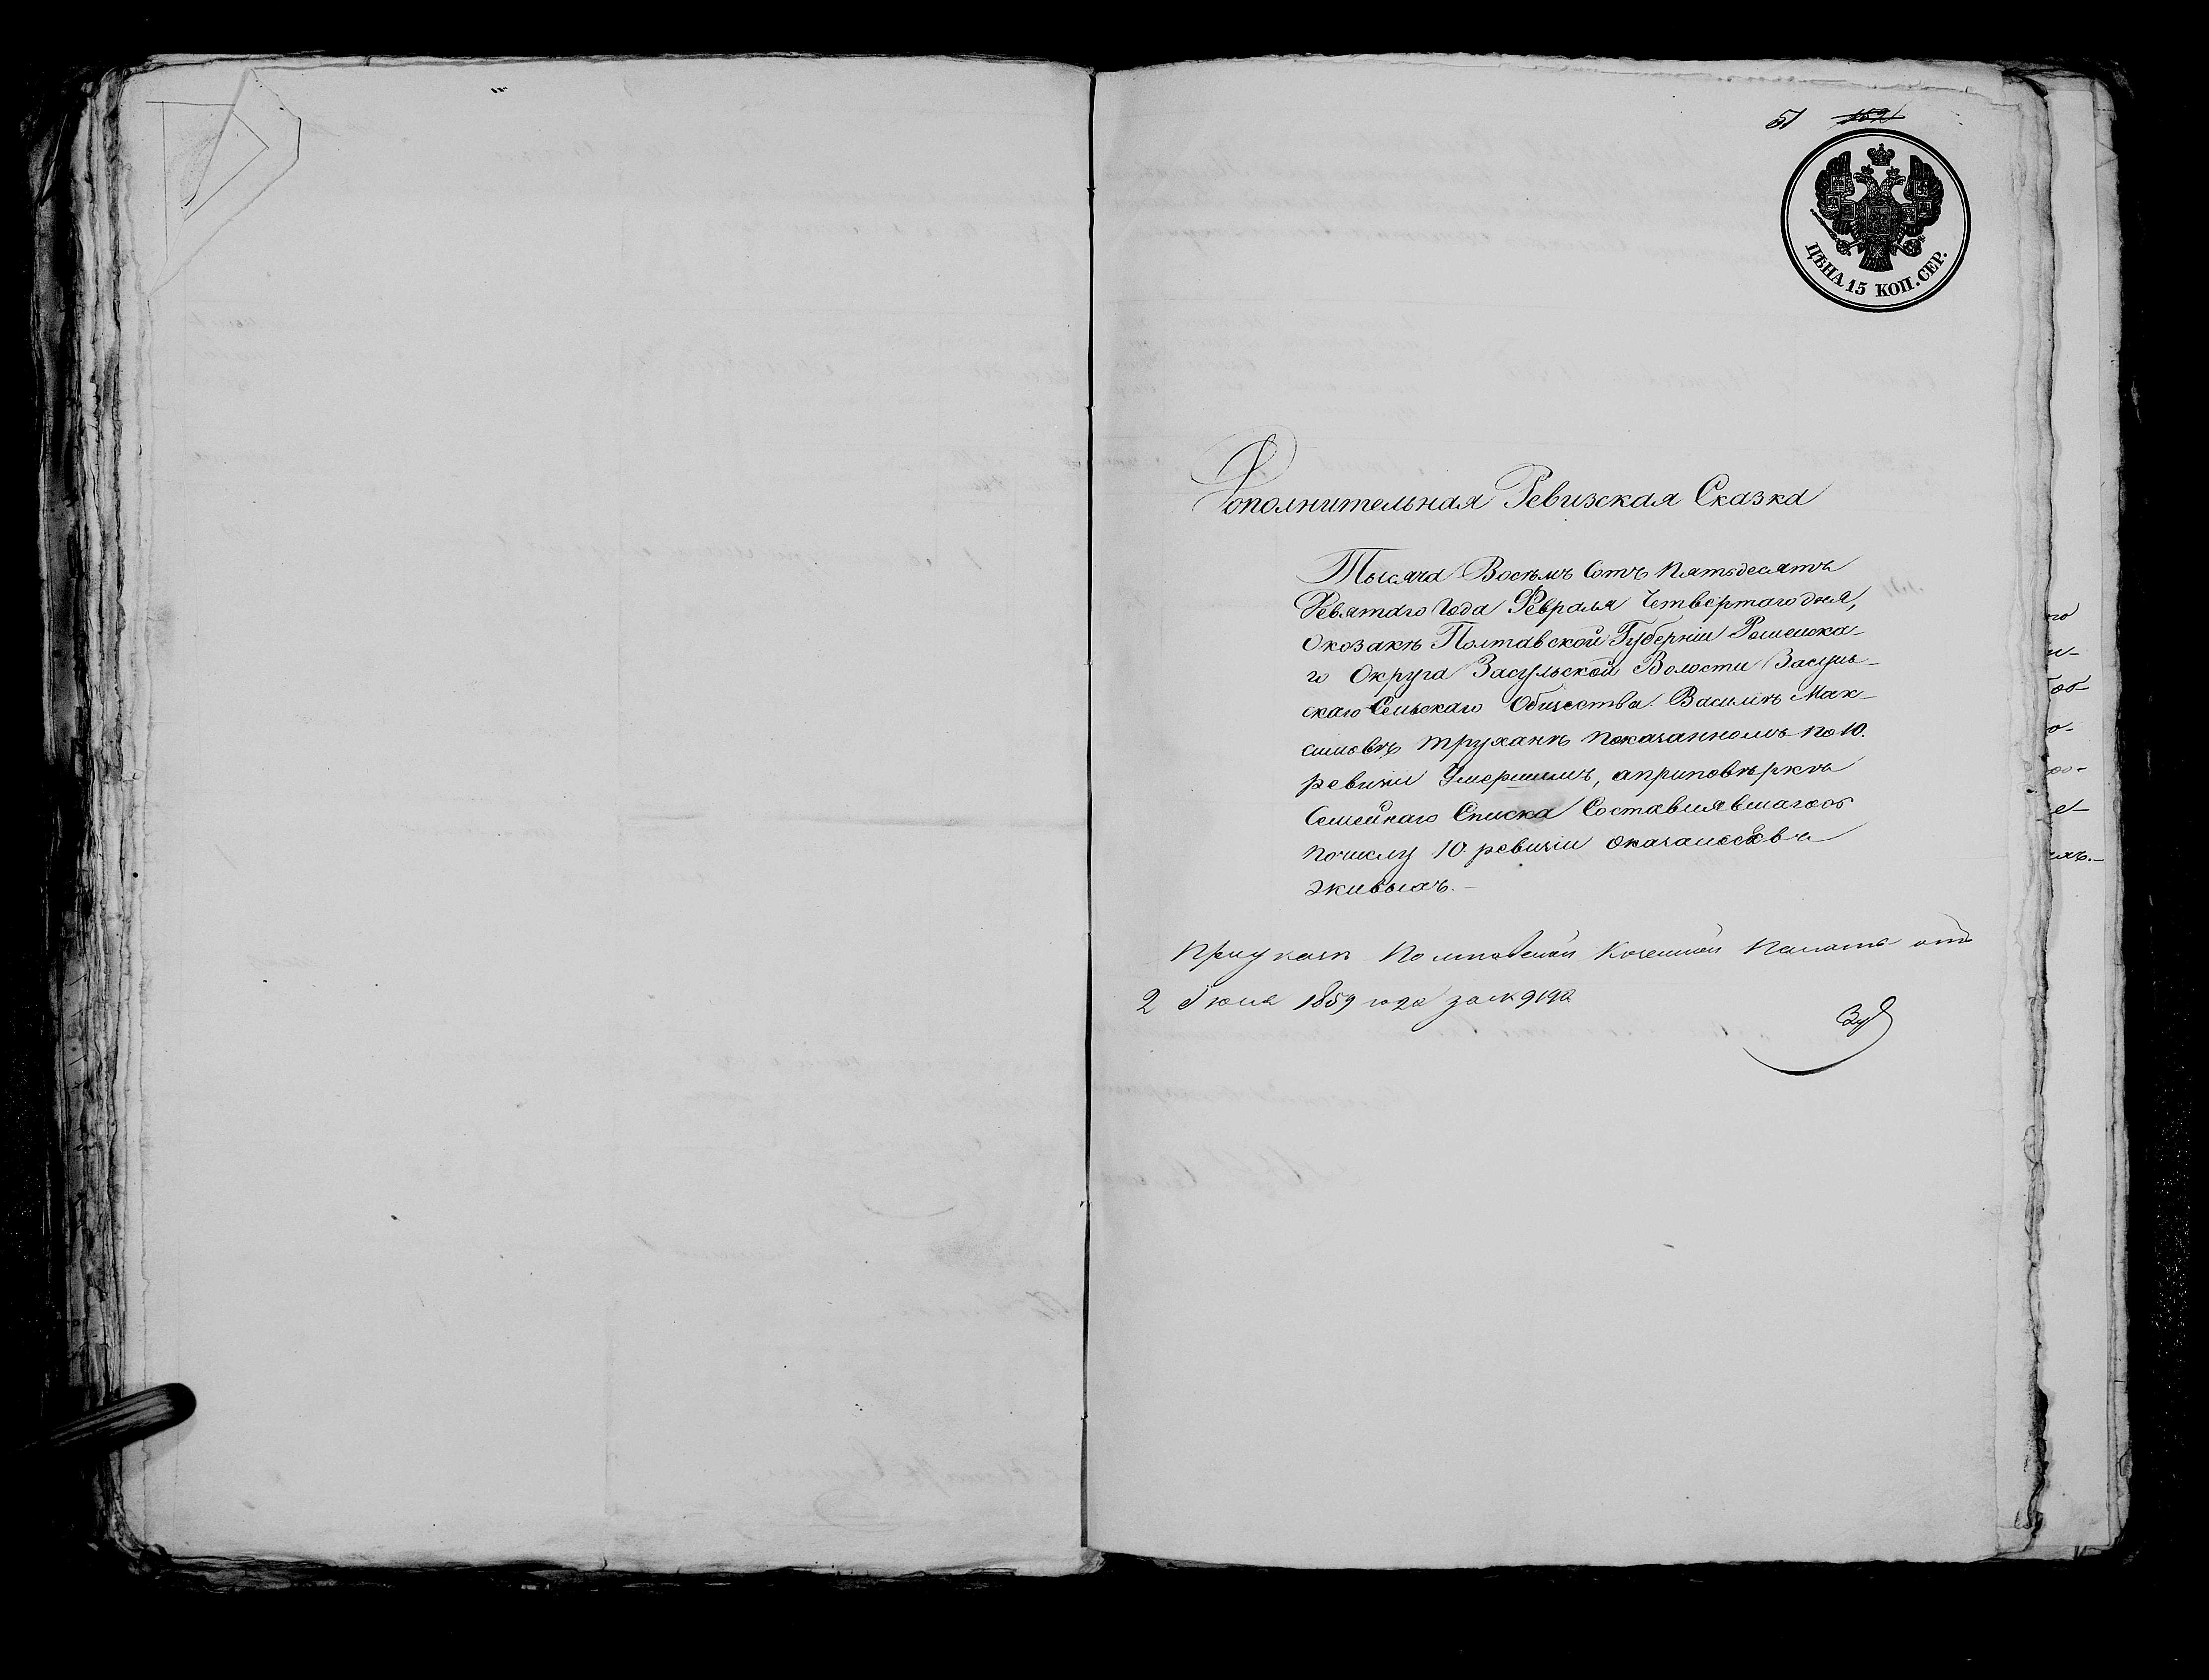 51 152
ЦѢНА 15 КОП. СЕР.
Дополнительная Ревизская Сказка
Тысяча Восемъ Сотъ Пятьдесятъ
Девятаго Года Февраля Четвертаго дня,
Окозакѣ Полтавской Губерніи Роменска-
го Округа Засульской Волости Засуль-
скаго Сельскаго Общества Василіѣ Мак-
симовѣ Труханѣ показанномъ по 10.
ревизіи Умершимъ, априповѣркѣ
Семейнаго Списка Составлявшагося
почислу 10 ревизіи оказалося въ
живыхъ.-
При указѣ Полтавской Казенной Палаты отъ
2 Июня 1859 года за № 9192